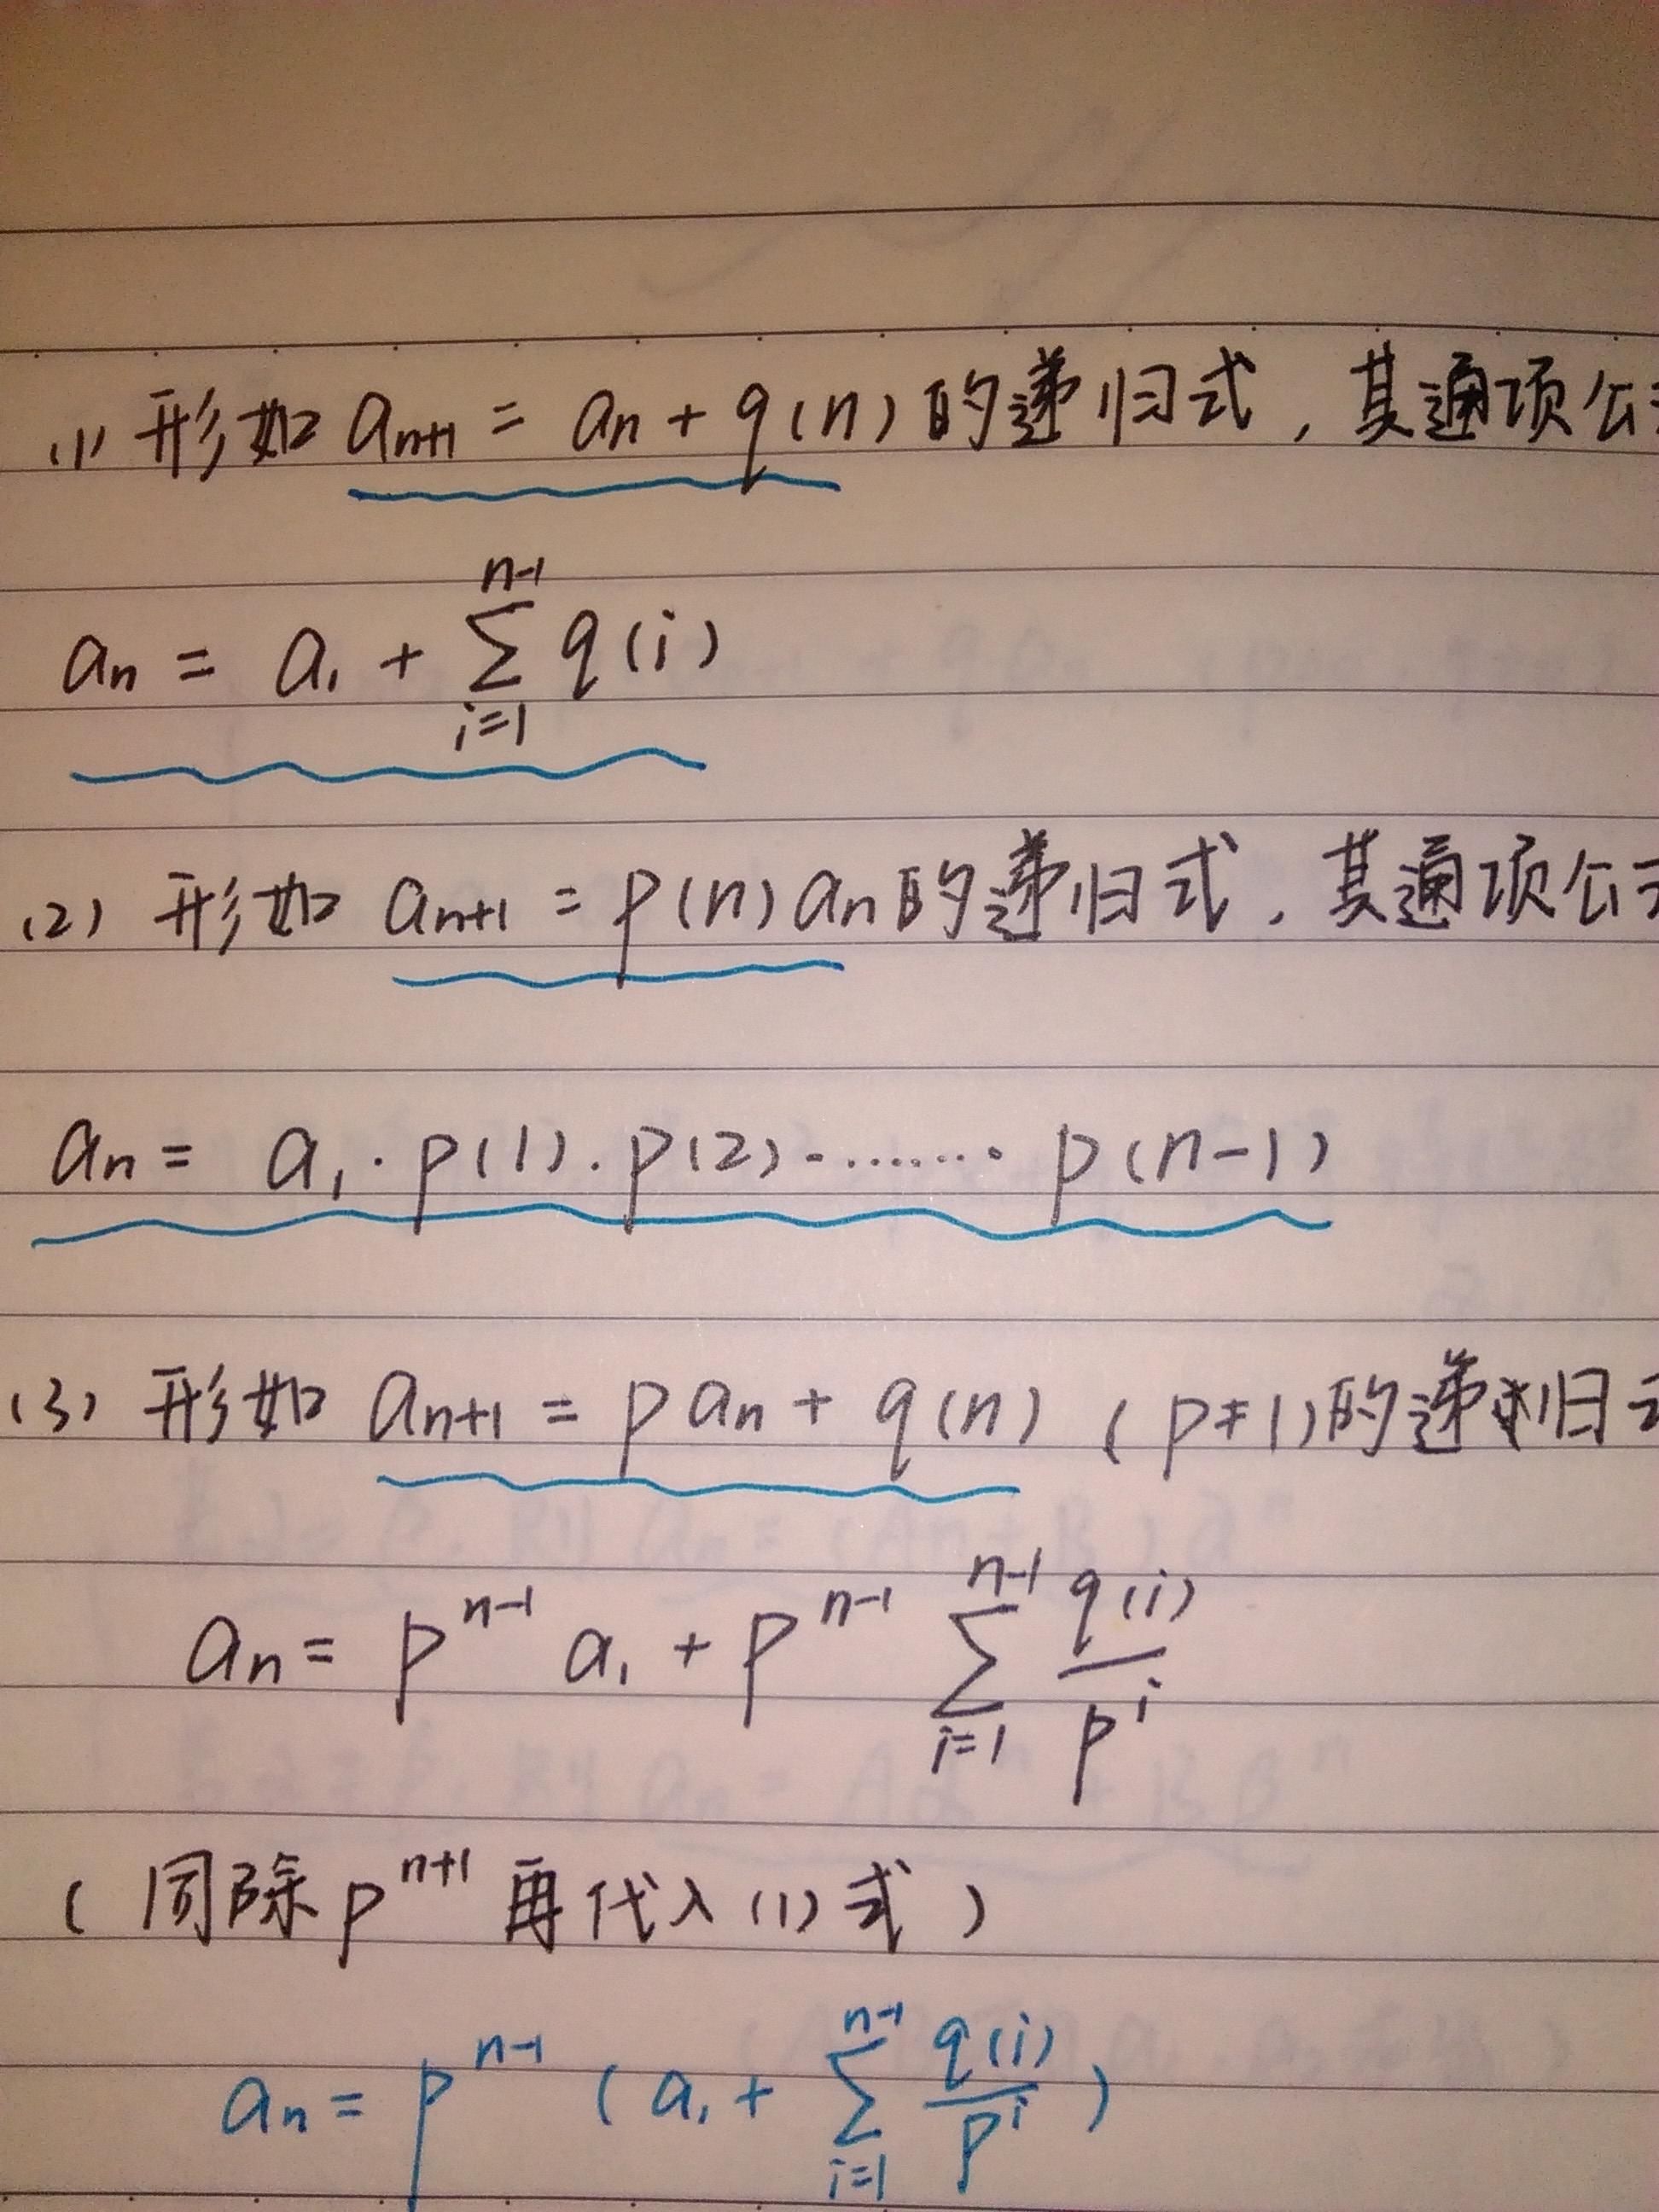 (1) 形如 aₙ₊₁ = aₙ + q(n) 的递归式，其通项公
aₙ = a₁ + ∑_{i=1}^{n-1} q(i)
(2) 形如 aₙ₊₁ = p(n)aₙ的递归式，其通项公
aₙ = a₁·p(1)·p(2)·……·p(n-1)
(3) 形如 aₙ₊₁ = p aₙ + q(n) (p≠1)的递归
aₙ = p^{n-1} a₁ + p^{n-1} ∑_{i=1}^{n-1} q(i)/p^i
(同除p^{n+1}再代入(1)式)
aₙ = p^{n-1} (a₁ + ∑_{i=1}^{n-1} q(i)/p^i)